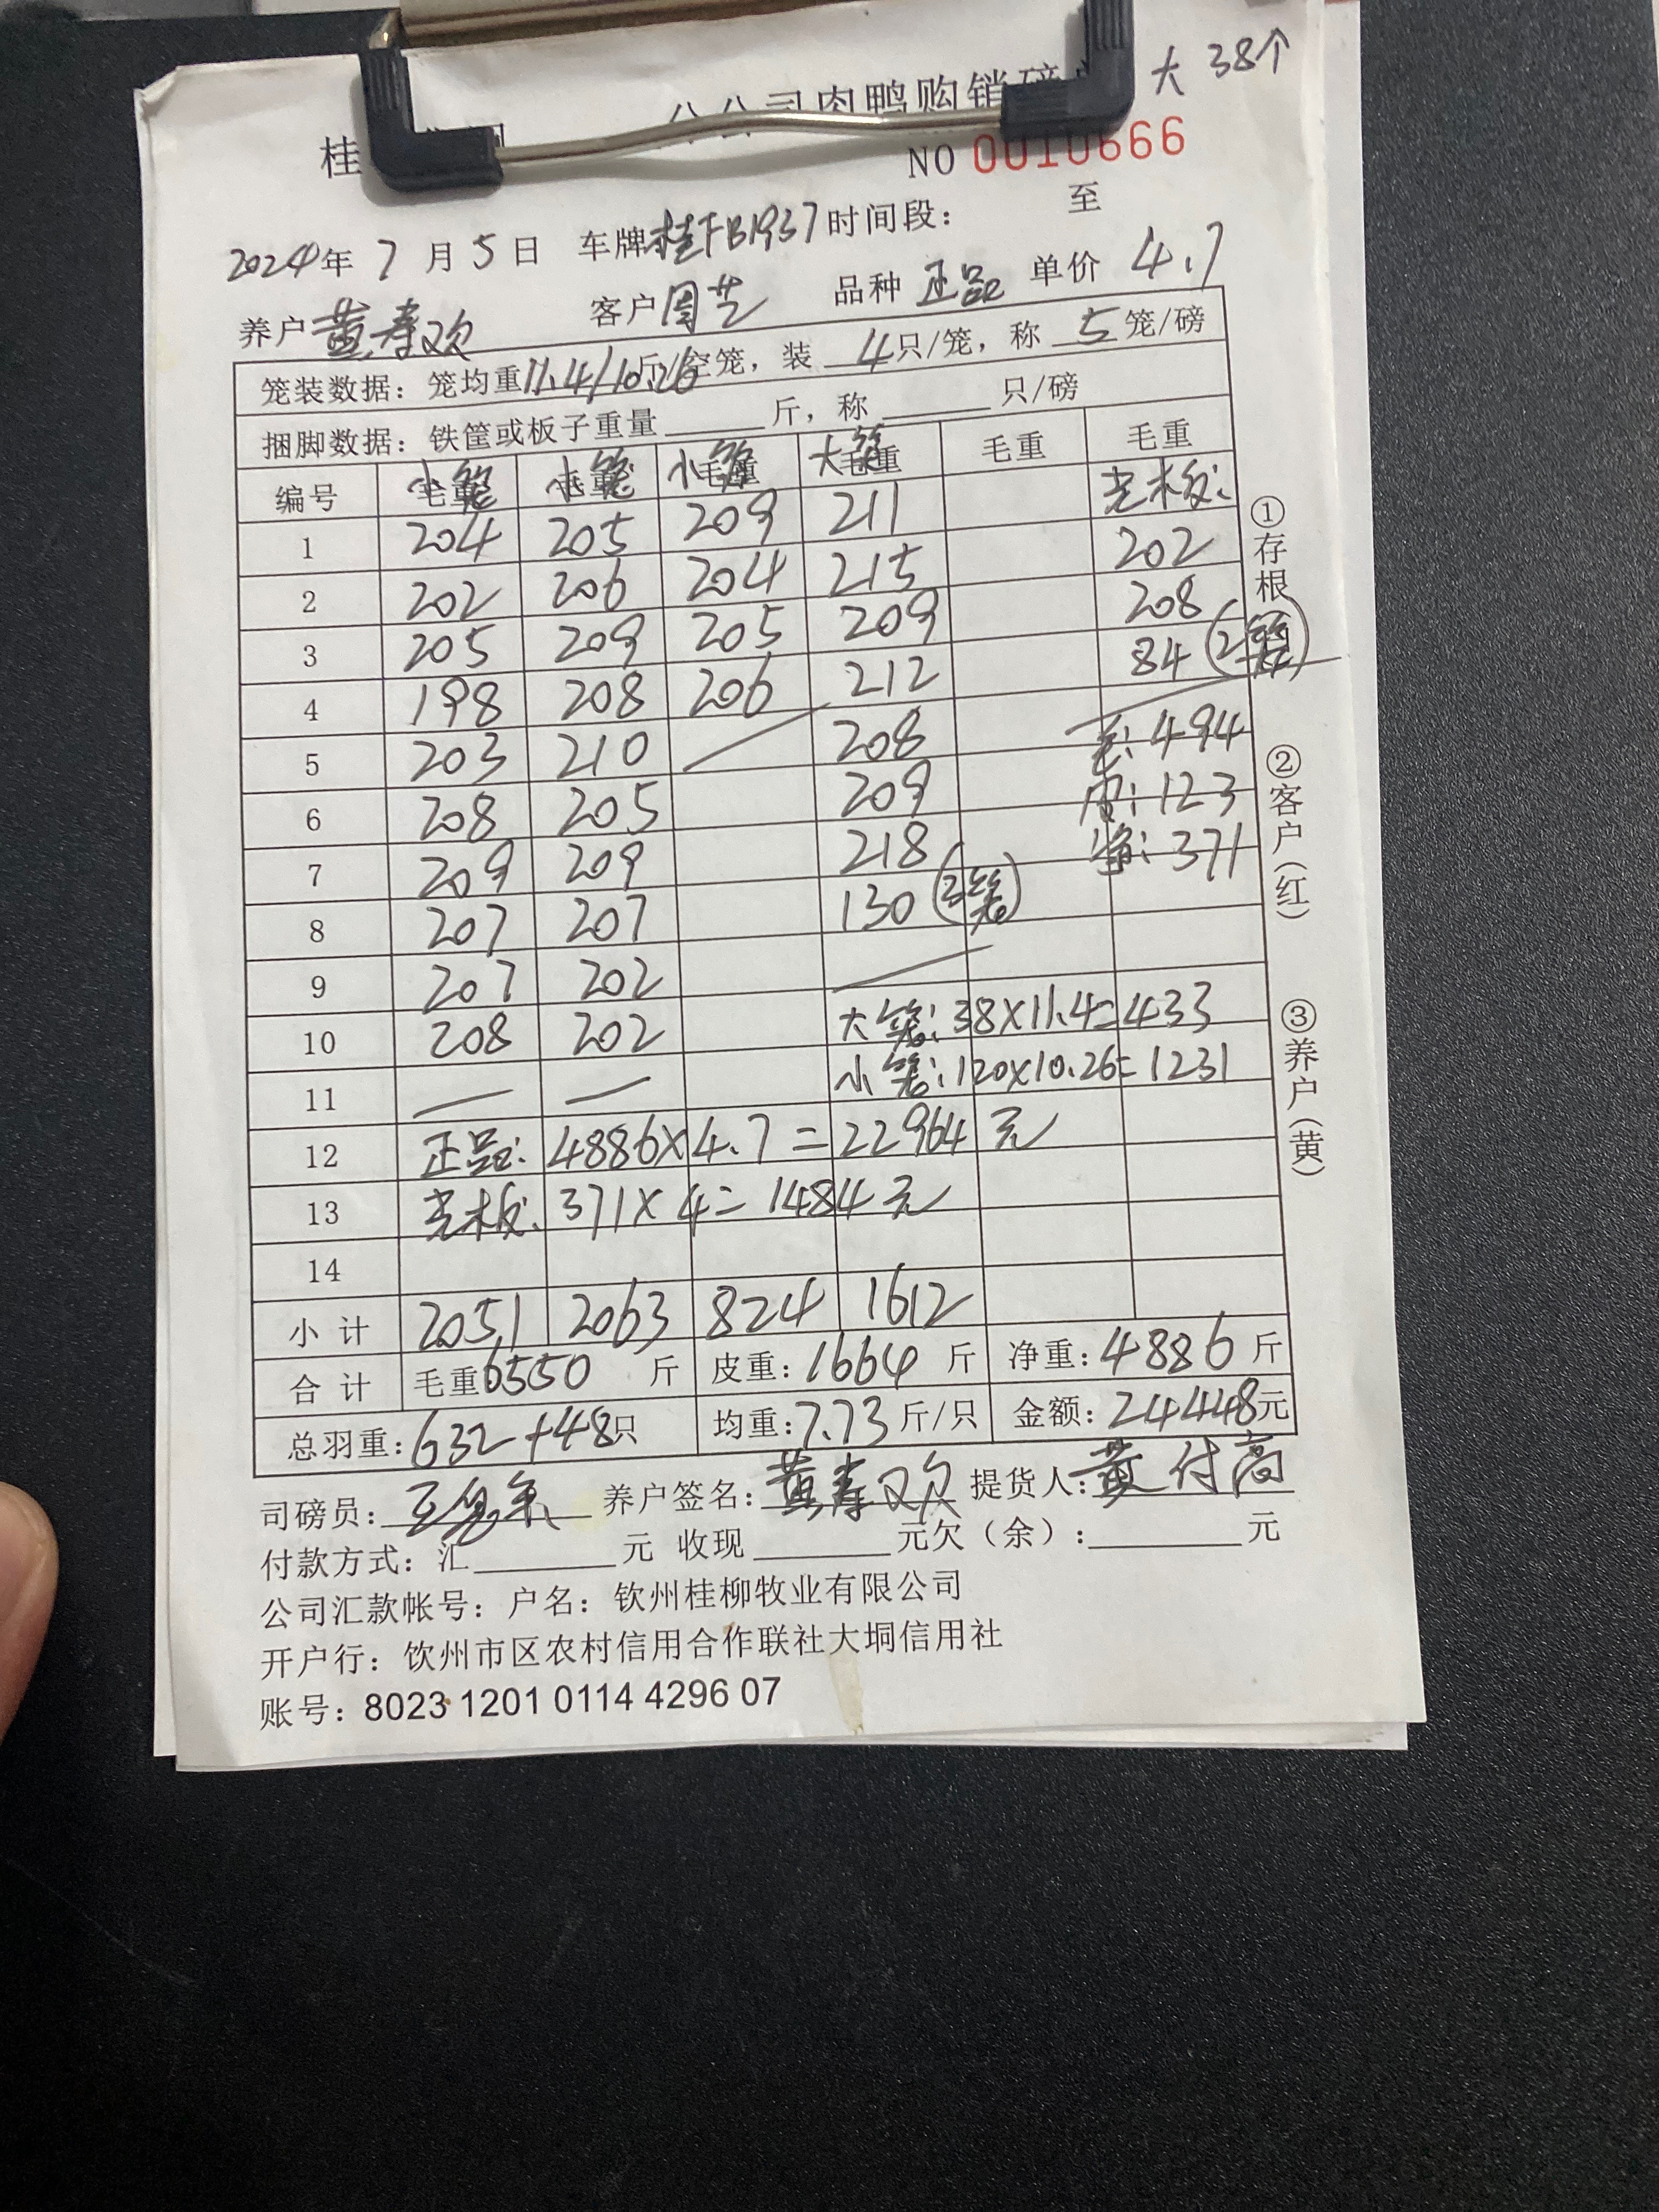 大 38个
桂 分公司肉鸭购销磅
NO 0010666
2024年 7 月 5 日 车牌桂FB1937 时间段: 至
养户 黄寿欢 客户 周芝 品种 正品 单价 4.7
笼装数据: 笼均重11.4/10.26斤/空笼, 装 4只/笼, 称 5 笼/磅
捆脚数据: 铁筐或板子重量 斤, 称 只/磅
编号 小笼 小笼 小笼 大笼 毛重 毛重
光板:
1 204 205 209 211 202
2 202 206 204 215 208
3 205 209 205 209 84 (2笼)
4 198 208 206 212 毛: 494
5 203 210 208 皮: 123
6 208 205 209 净: 371
7 209 209 218
8 207 207 130 (3笼)
9 207 202
10 208 202 大笼: 38×11.4=433
11 — — 小笼: 120×10.26=1231
12 正品: 4886×4.7=22964 元
13 光板: 371×4=1484元
14
小 计 2051 2063 824 1612
合 计 毛重6550 斤 皮重: 1664 斤 净重: 4886 斤
总羽重: 632+48只 均重: 7.73 斤/只 金额: 24448元
司磅员: 养户签名: 黄寿欢 提货人: 黄付高
付款方式: 汇 元 收现 元欠(余): 元
公司汇款帐号: 户名: 钦州桂柳牧业有限公司
开户行: 饮州市区农村信用合作联社大垌信用社
账号: 8023 1201 0114 4296 07
①存根 ②客户(红) ③养户(黄)